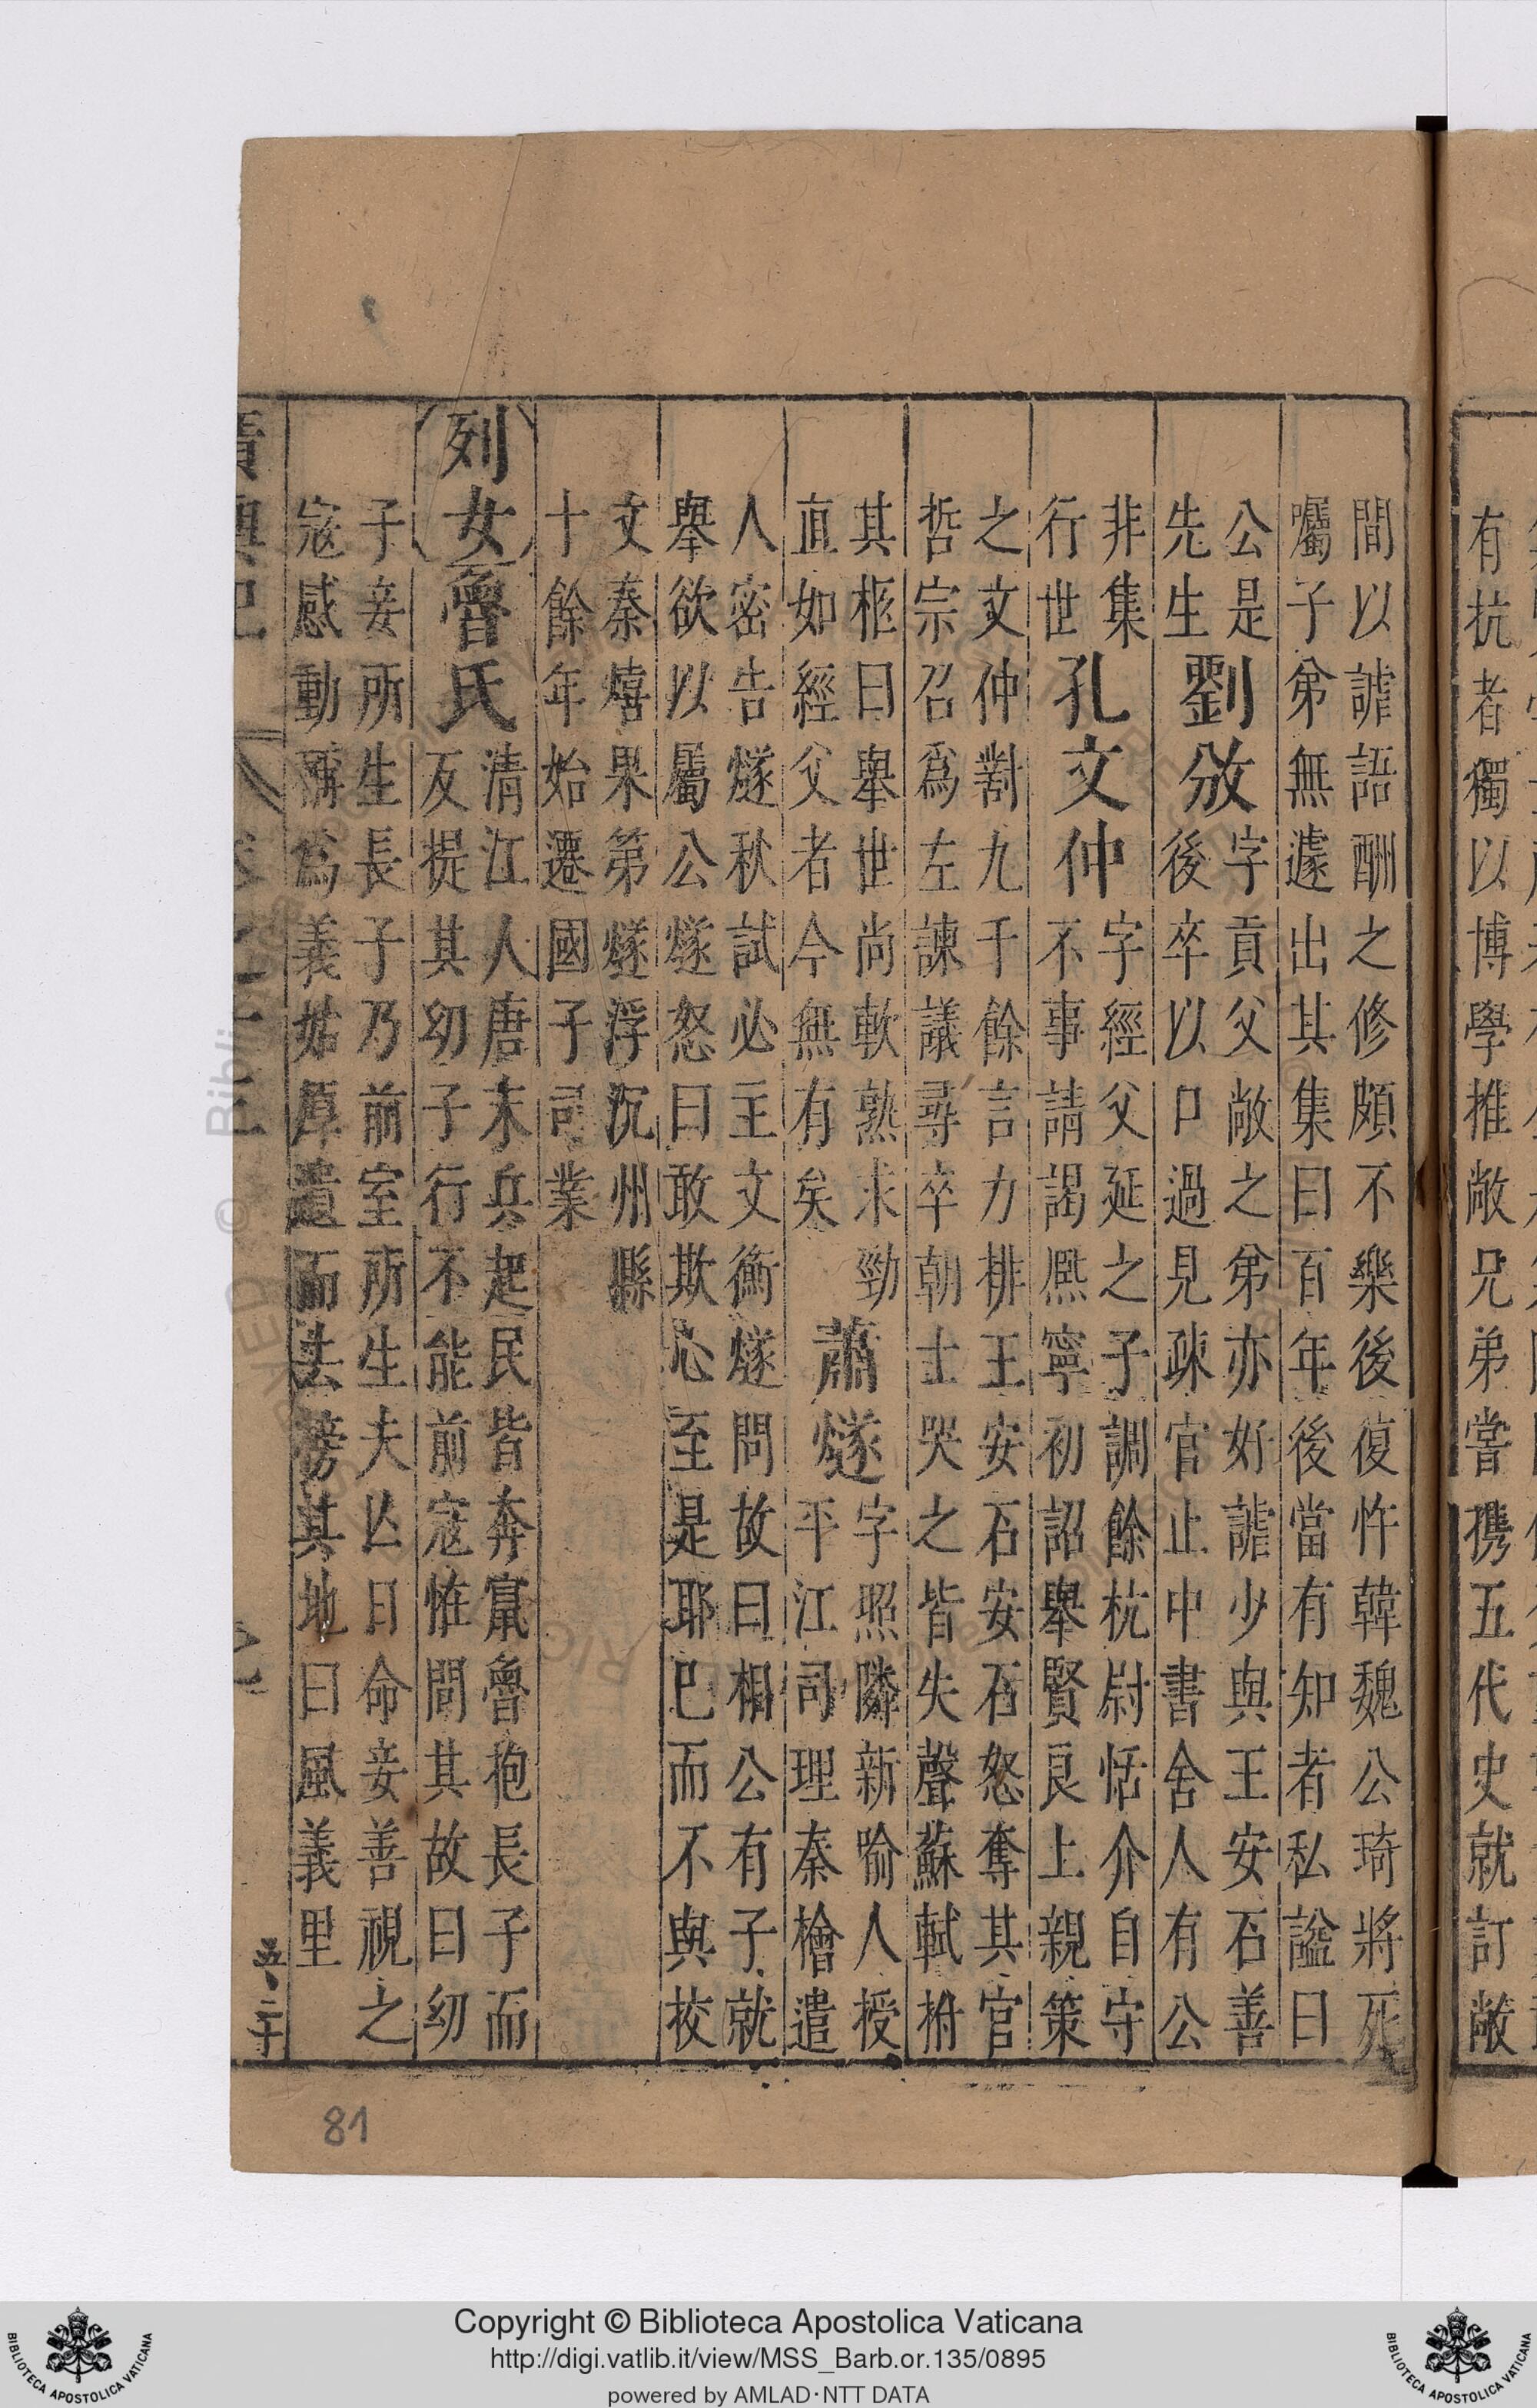 有抗者獨以博學推敞兄弟嘗携五代史就訂敞
間以謔語酬之修頗不樂後復忤韓魏公琦將死
囑子弟無遽出其集曰百年後當有知者私謚曰
公是
先生
劉攽
字貢父敞之弟亦好謔少與王安石善
後卒以口過見疎官止中書舍人有公
非集
行世
孔文仲
字經父延之子調餘杭尉恬介自守
不事請謁熙寧初詔舉賢良上親策
之文仲對九千餘言力排王安石安石怒奪其官
哲宗召爲左諫議尋卒朝士哭之皆失聲蘇軾拊
其柩曰舉世尚軟熟求勁
直如經父者今無有矣
蕭燧
字照隣新喻人授
平江司理秦檜遣
人密告燧秋試必主文衡燧問故曰相公有子就
舉欲以屬公燧怒曰敢欺心至是耶已而不與校
文秦熺果第燧浮沉州縣
十餘年始遷國子司業
列女
魯氏
清江人唐末兵起民皆奔竄魯抱長子而
反提其幼子行不能前寇惟問其故曰幼
子妾所生長子乃前室所生夫亾日命妾善視之
寇感動稱爲義姑厚遺而去榜其地曰風義里
五二十
81
Copyright © Biblioteca Apostolica Vaticana
http://digi.vatlib.it/view/MSS_Barb.or.135/0895
powered by AMLAD·NTT DATA